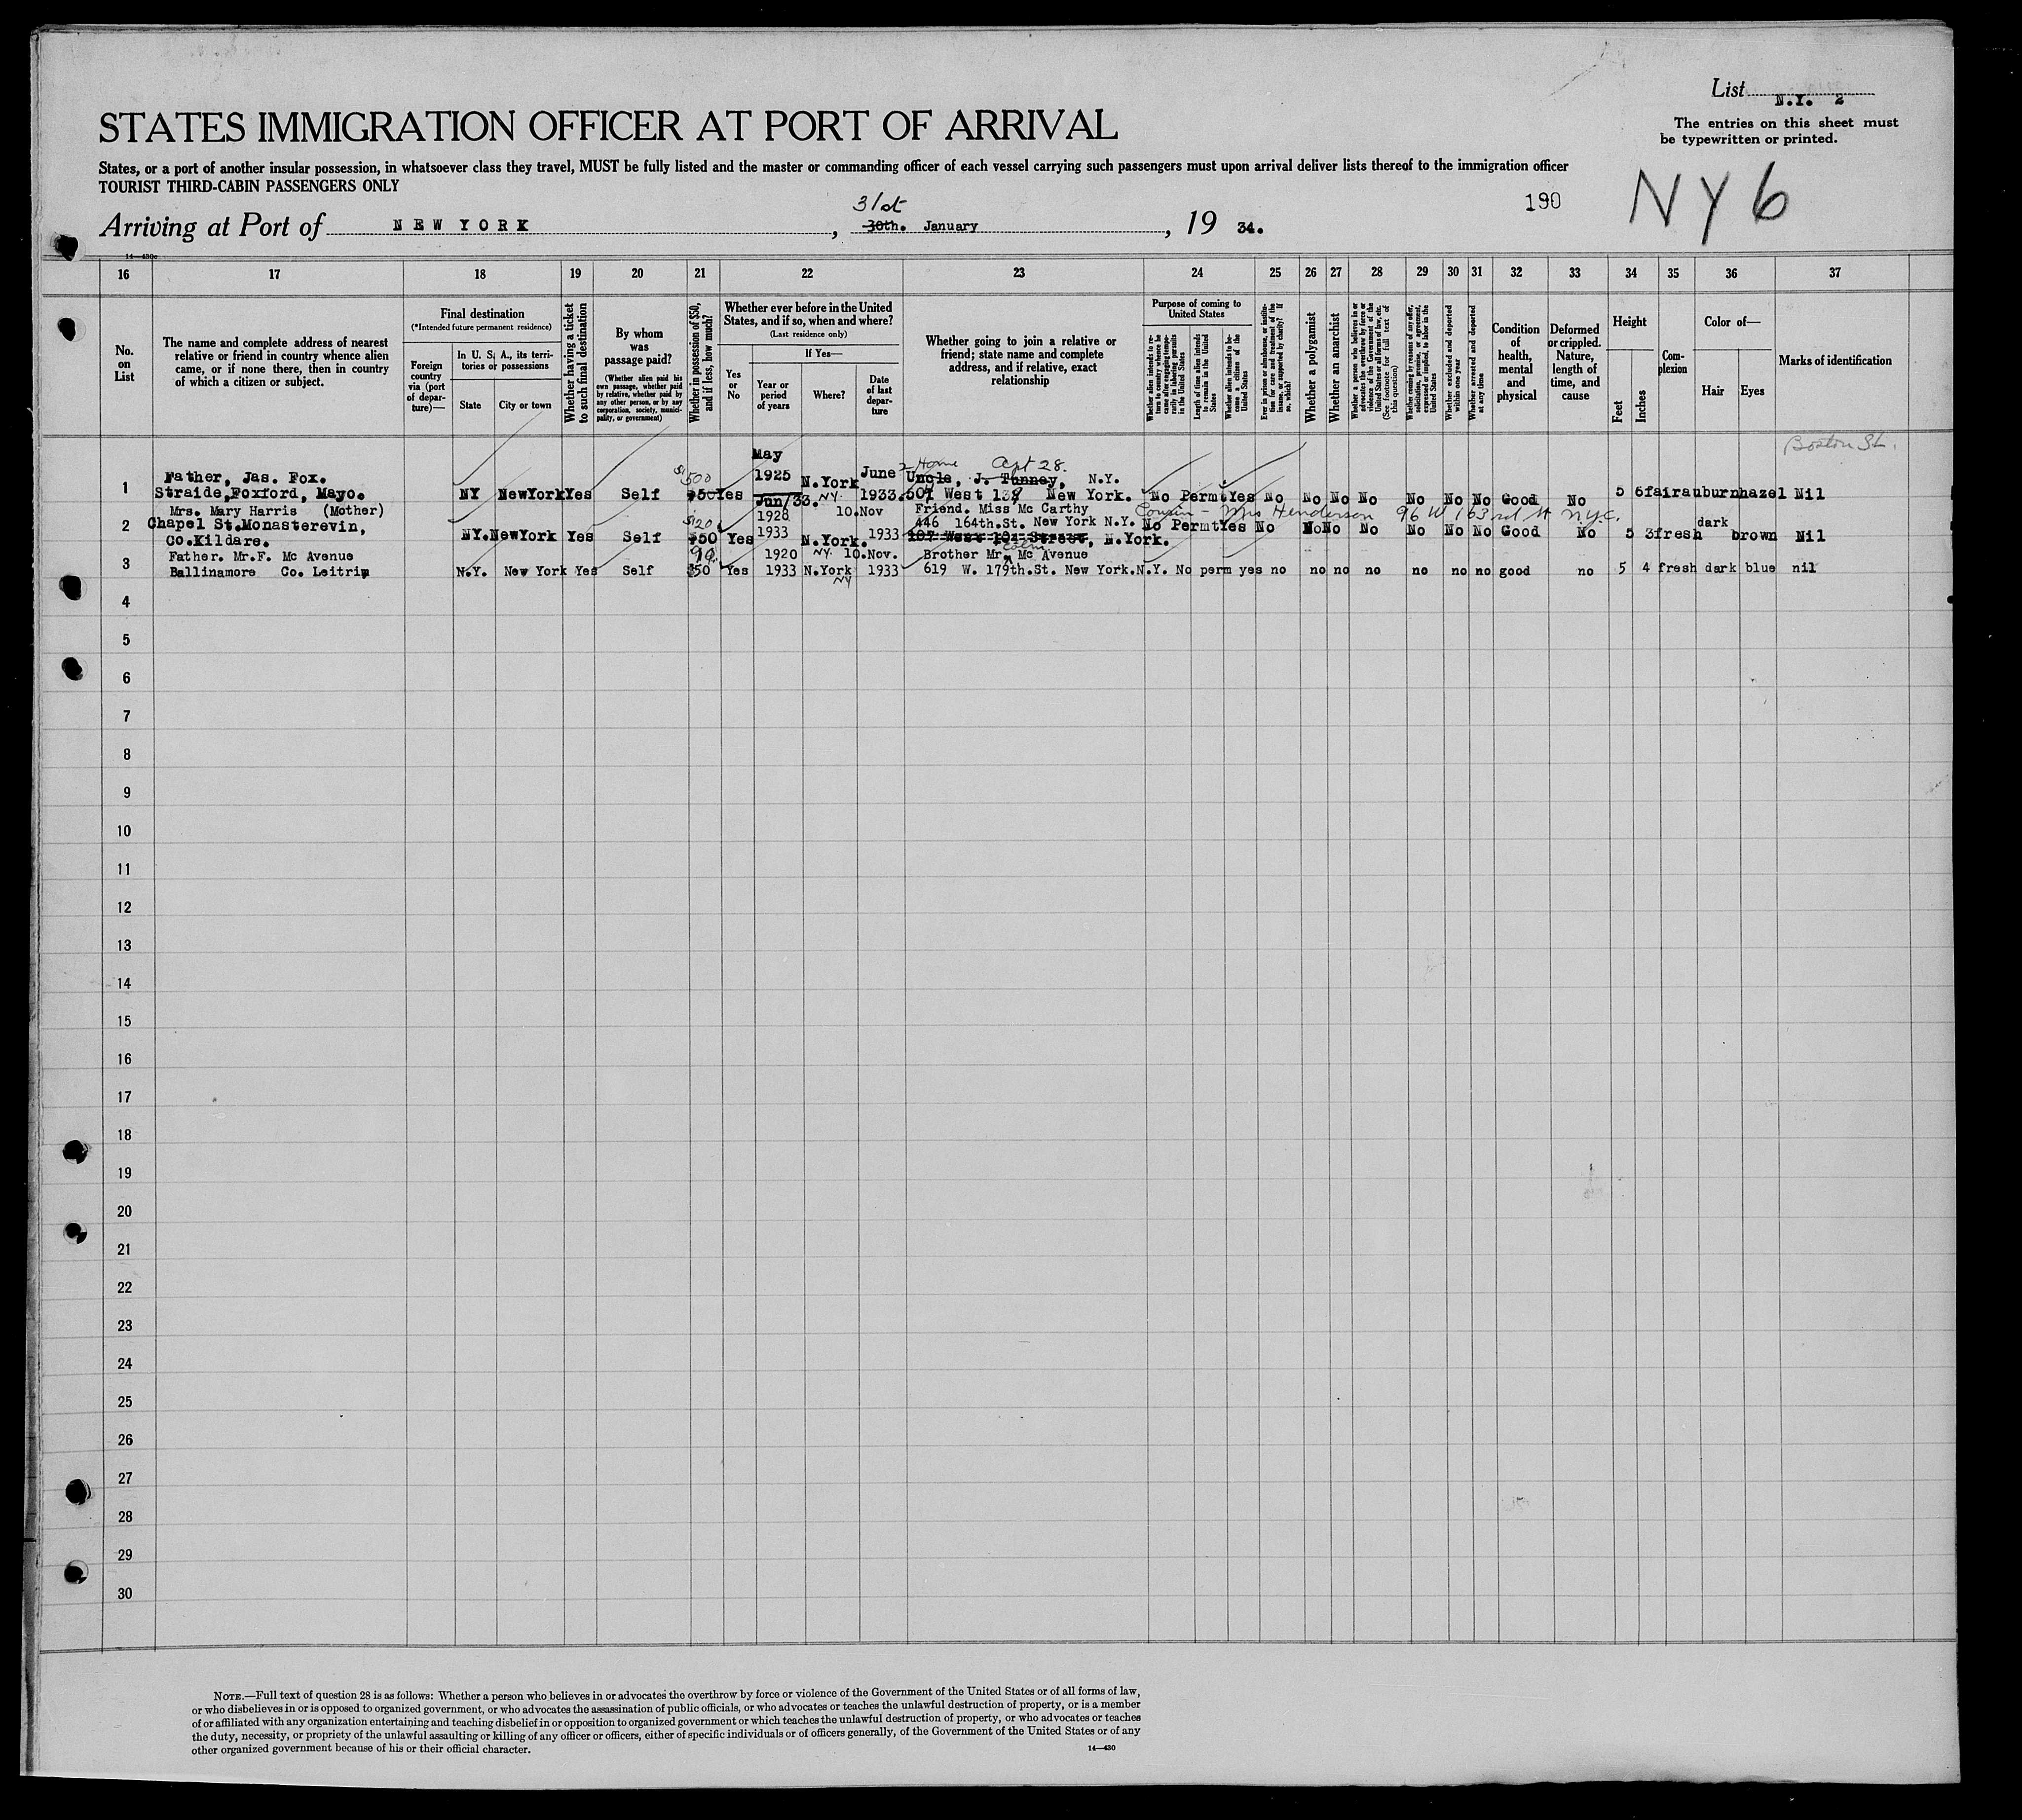 List N.Y. 2
The entries on this sheet must
be typewritten or printed.
STATES IMMIGRATION OFFICER AT PORT OF ARRIVAL
States, or a port of another insular possession, in whatsoever class they travel, MUST be fully listed and the master or commanding officer of each vessel carrying such passengers must upon arrival deliver lists thereof to the immigration officer
TOURIST THIRD-CABIN PASSENGERS ONLY
190
NY6
31st
Arriving at Port of NEW YORK, 30th. January, 19 34.
16 17 18 19 20 21 22 23 24 25 26 27 28 29 30 31 32 33 34 35 36 37
No. on List
The name and complete address of nearest
relative or friend in country whence alien
came, or if none there, then in country
of which a citizen or subject.
Final destination
(*Intended future permanent residence)
Foreign country via (port of departure)—
In U. S. A., its territories or possessions
State
City or town
Whether having a ticket to such final destination
By whom was passage paid?
(Whether alien paid his own passage, whether paid by relative, whether paid by any other person, or by any corporation, society, municipality, or government)
Whether in possession of $50, and if less, how much?
Whether ever before in the United
States, and if so, when and where?
(Last residence only)
Yes or No
If Yes—
Year or period of years
Where?
Date of last departure
Whether going to join a relative or
friend; state name and complete
address, and if relative, exact
relationship
Purpose of coming to United States
Whether alien intends to return to country whence he came after engaging temporarily in laboring pursuits in the United States
Length of time alien intends to remain in the United States
Whether alien intends to become a citizen of the United States
Ever in prison or almshouse, or institution for care and treatment of the insane, or supported by charity? If so, which?
Whether a polygamist
Whether an anarchist
Whether a person who believes in or advocates the overthrow by force or violence of the Government of the United States or all forms of law, etc. (See footnote for full text of this question)
Whether coming by reasons of any offer, solicitation, promise, or agreement, expressed or implied, to labor in the United States
Whether excluded and deported within one year
Whether arrested and deported at any time
Condition of health, mental and physical
Deformed or crippled. Nature, length of time, and cause
Height
Feet
Inches
Complexion
Color of—
Hair
Eyes
Marks of identification
Boston St.
May
Father, Jas. Fox. $500 1925 N.York June Home Apt 28. Uncle, J. Tunney, N.Y.
1 Straide, Foxford, Mayo. NY NewYork Yes Self 50 Yes Jun/33. NY. 1933. 507 West 138 New York. No Permt Yes No No No No No No No Good No 5 6 fair auburn hazel Nil
Mrs. Mary Harris (Mother) 1928 10.Nov Friend. Miss Mc Carthy Cousin - Mrs Henderson 96 W 163rd St N.Y.C.
2 Chapel St. Monasterevin, NY. NewYork Yes Self $120 50 Yes 1933 N.York. 1933 446 164th.St. New York N.Y. No Permt Yes No No No No No No No Good No 5 3 fresh dark brown Nil
Co.Kildare. 107 West 104 Street, N.York.
Father. Mr.F. Mc Avenue 90 1920 NY 10.Nov. Brother Mr. Mc Avenue
3 Ballinamore Co. Leitrim N.Y. New York Yes Self $50 Yes 1933 N.York NY 1933 619 W. 179th.St. New York.N.Y. No perm yes no no no no no no no good no 5 4 fresh dark blue nil
4
5
6
7
8
9
10
11
12
13
14
15
16
17
18
19
20
21
22
23
24
25
26
27
28
29
30
NOTE.—Full text of question 28 is as follows: Whether a person who believes in or advocates the overthrow by force or violence of the Government of the United States or of all forms of law,
or who disbelieves in or is opposed to organized government, or who advocates the assassination of public officials, or who advocates or teaches the unlawful destruction of property, or is a member
of or affiliated with any organization entertaining and teaching disbelief in or opposition to organized government or which teaches the unlawful destruction of property, or who advocates or teaches
the duty, necessity, or propriety of the unlawful assaulting or killing of any officer or officers, either of specific individuals or of officers generally, of the Government of the United States or of any
other organized government because of his or their official character.
14—430